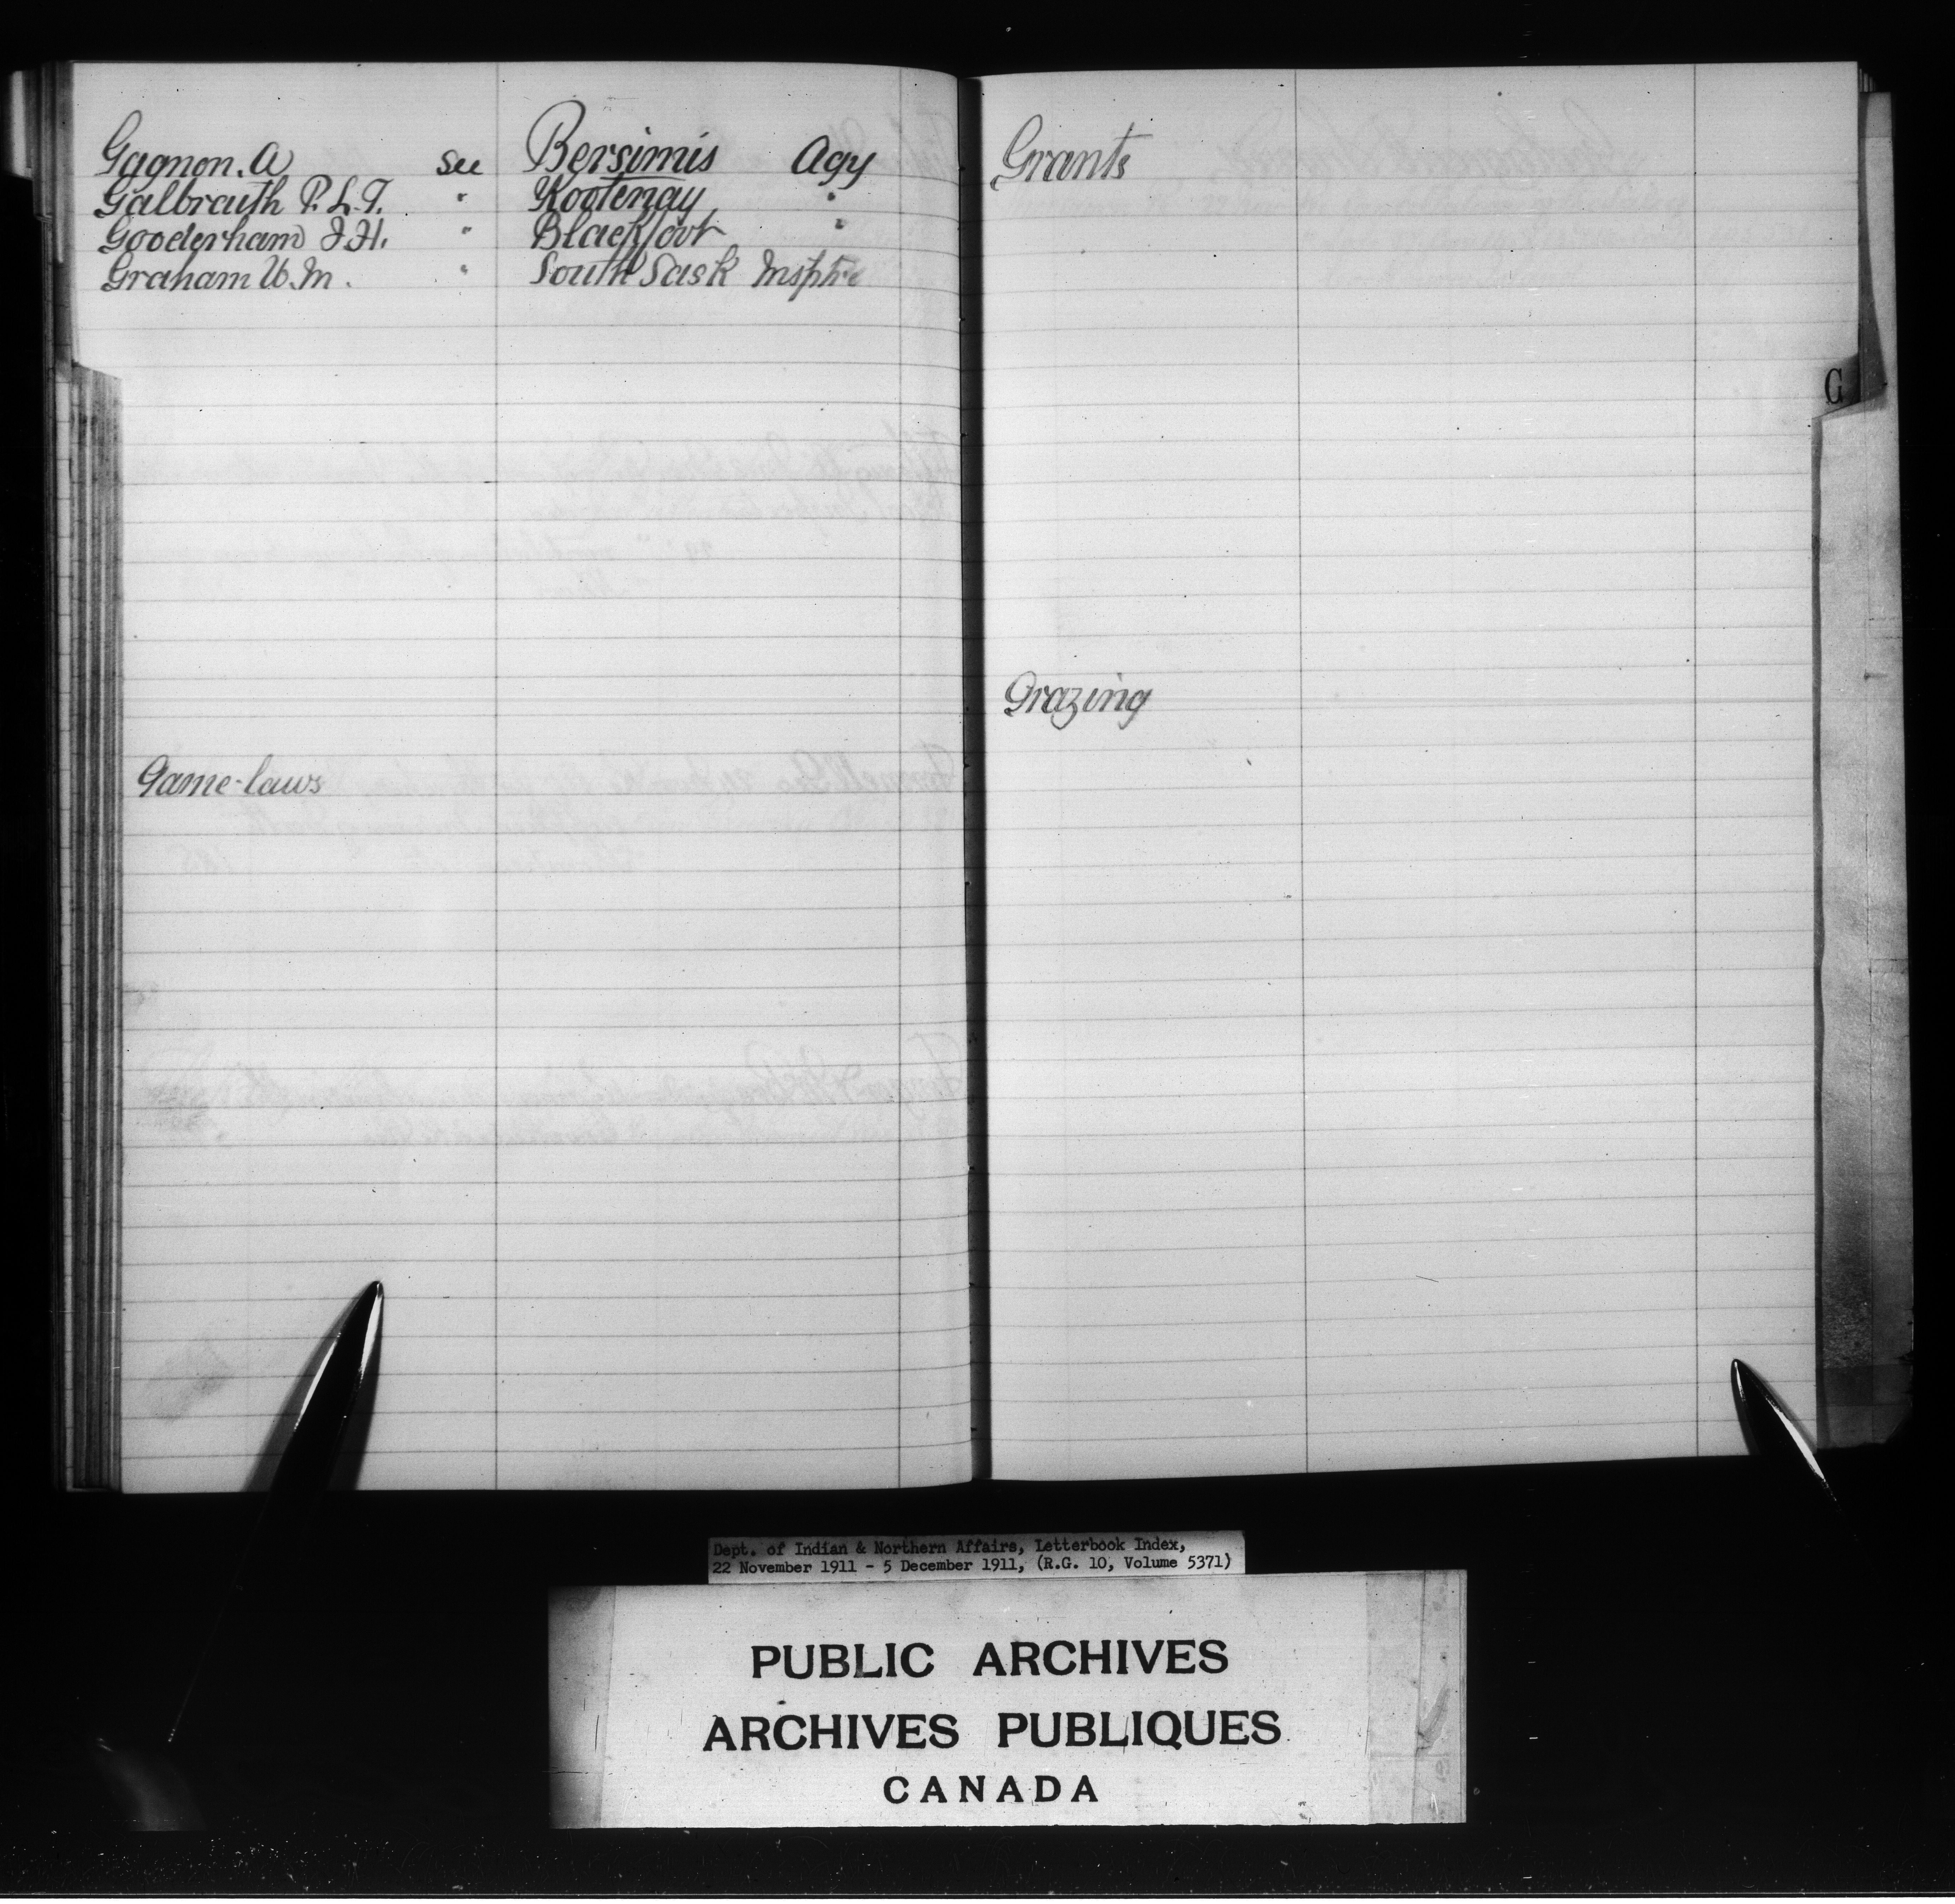 Gagnon. A see Bersimis Agy
Galbraith R. L. T. " Kootenay "
Gooderham J. H. " Blackfoot "
Graham W. M. " South Sask Insptre
Game-laws
Grants
Grazing
G
Dept. of Indian & Northern Affairs, Letterbook Index,
22 November 1911 - 5 December 1911, (R.G. 10, Volume 5371)
PUBLIC ARCHIVES
ARCHIVES PUBLIQUES
CANADA